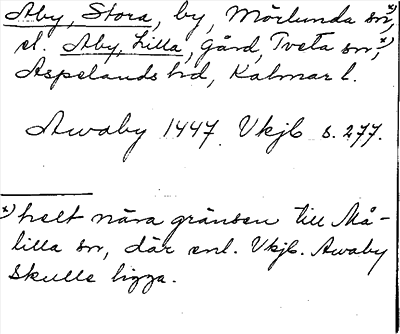 Åby, Stora, by, Mörlunda sn,x)
el. Åby, Lilla, gård, Tveta sn,x)
Aspelands hd, Kalmar l.
Awaby 1447 Vkjb s. 277.
x) helt nära gränsen till Må-
lilla sn, där enl. Vkjb. Awaby
skulle ligga.